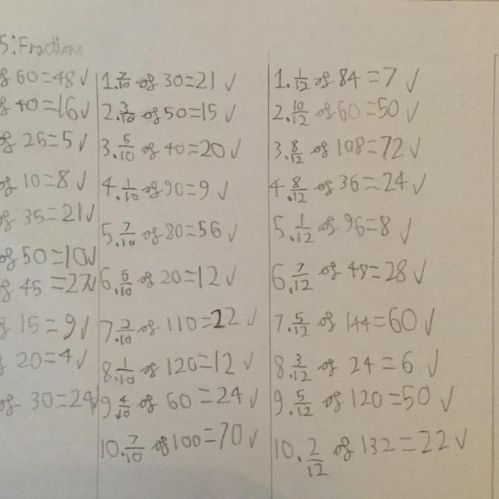 5: Fractions
of 60=48 ✓
of 40=16 ✓
of 25=5 ✓
of 10=8 ✓
of 35=21 ✓
of 50=10 ✓
of 45=27 ✓
of 15=9 ✓
20=4 ✓
of 30=24 ✓
1. 7/10 of 30=21 ✓
2. 3/10 of 50=15 ✓
3. 5/10 of 40=20 ✓
4. 1/10 of 90=9 ✓
5. 7/10 of 80=56 ✓
6. 6/10 of 20=12 ✓
7. 2/10 of 110=22 ✓
8. 1/10 of 120=12 ✓
9 4/10 of 60=24 ✓
10. 7/10 of 100=70 ✓
1. 1/12 of 84=7 ✓
2. 10/12 of 60=50 ✓
3. 8/12 of 108=72 ✓
4. 8/12 of 36=24 ✓
5. 1/12 of 96=8 ✓
6. 7/12 of 48=28 ✓
7. 5/12 of 144=60 ✓
8. 3/12 of 24=6 ✓
9. 5/12 of 120=50 ✓
10. 2/12 of 132=22 ✓